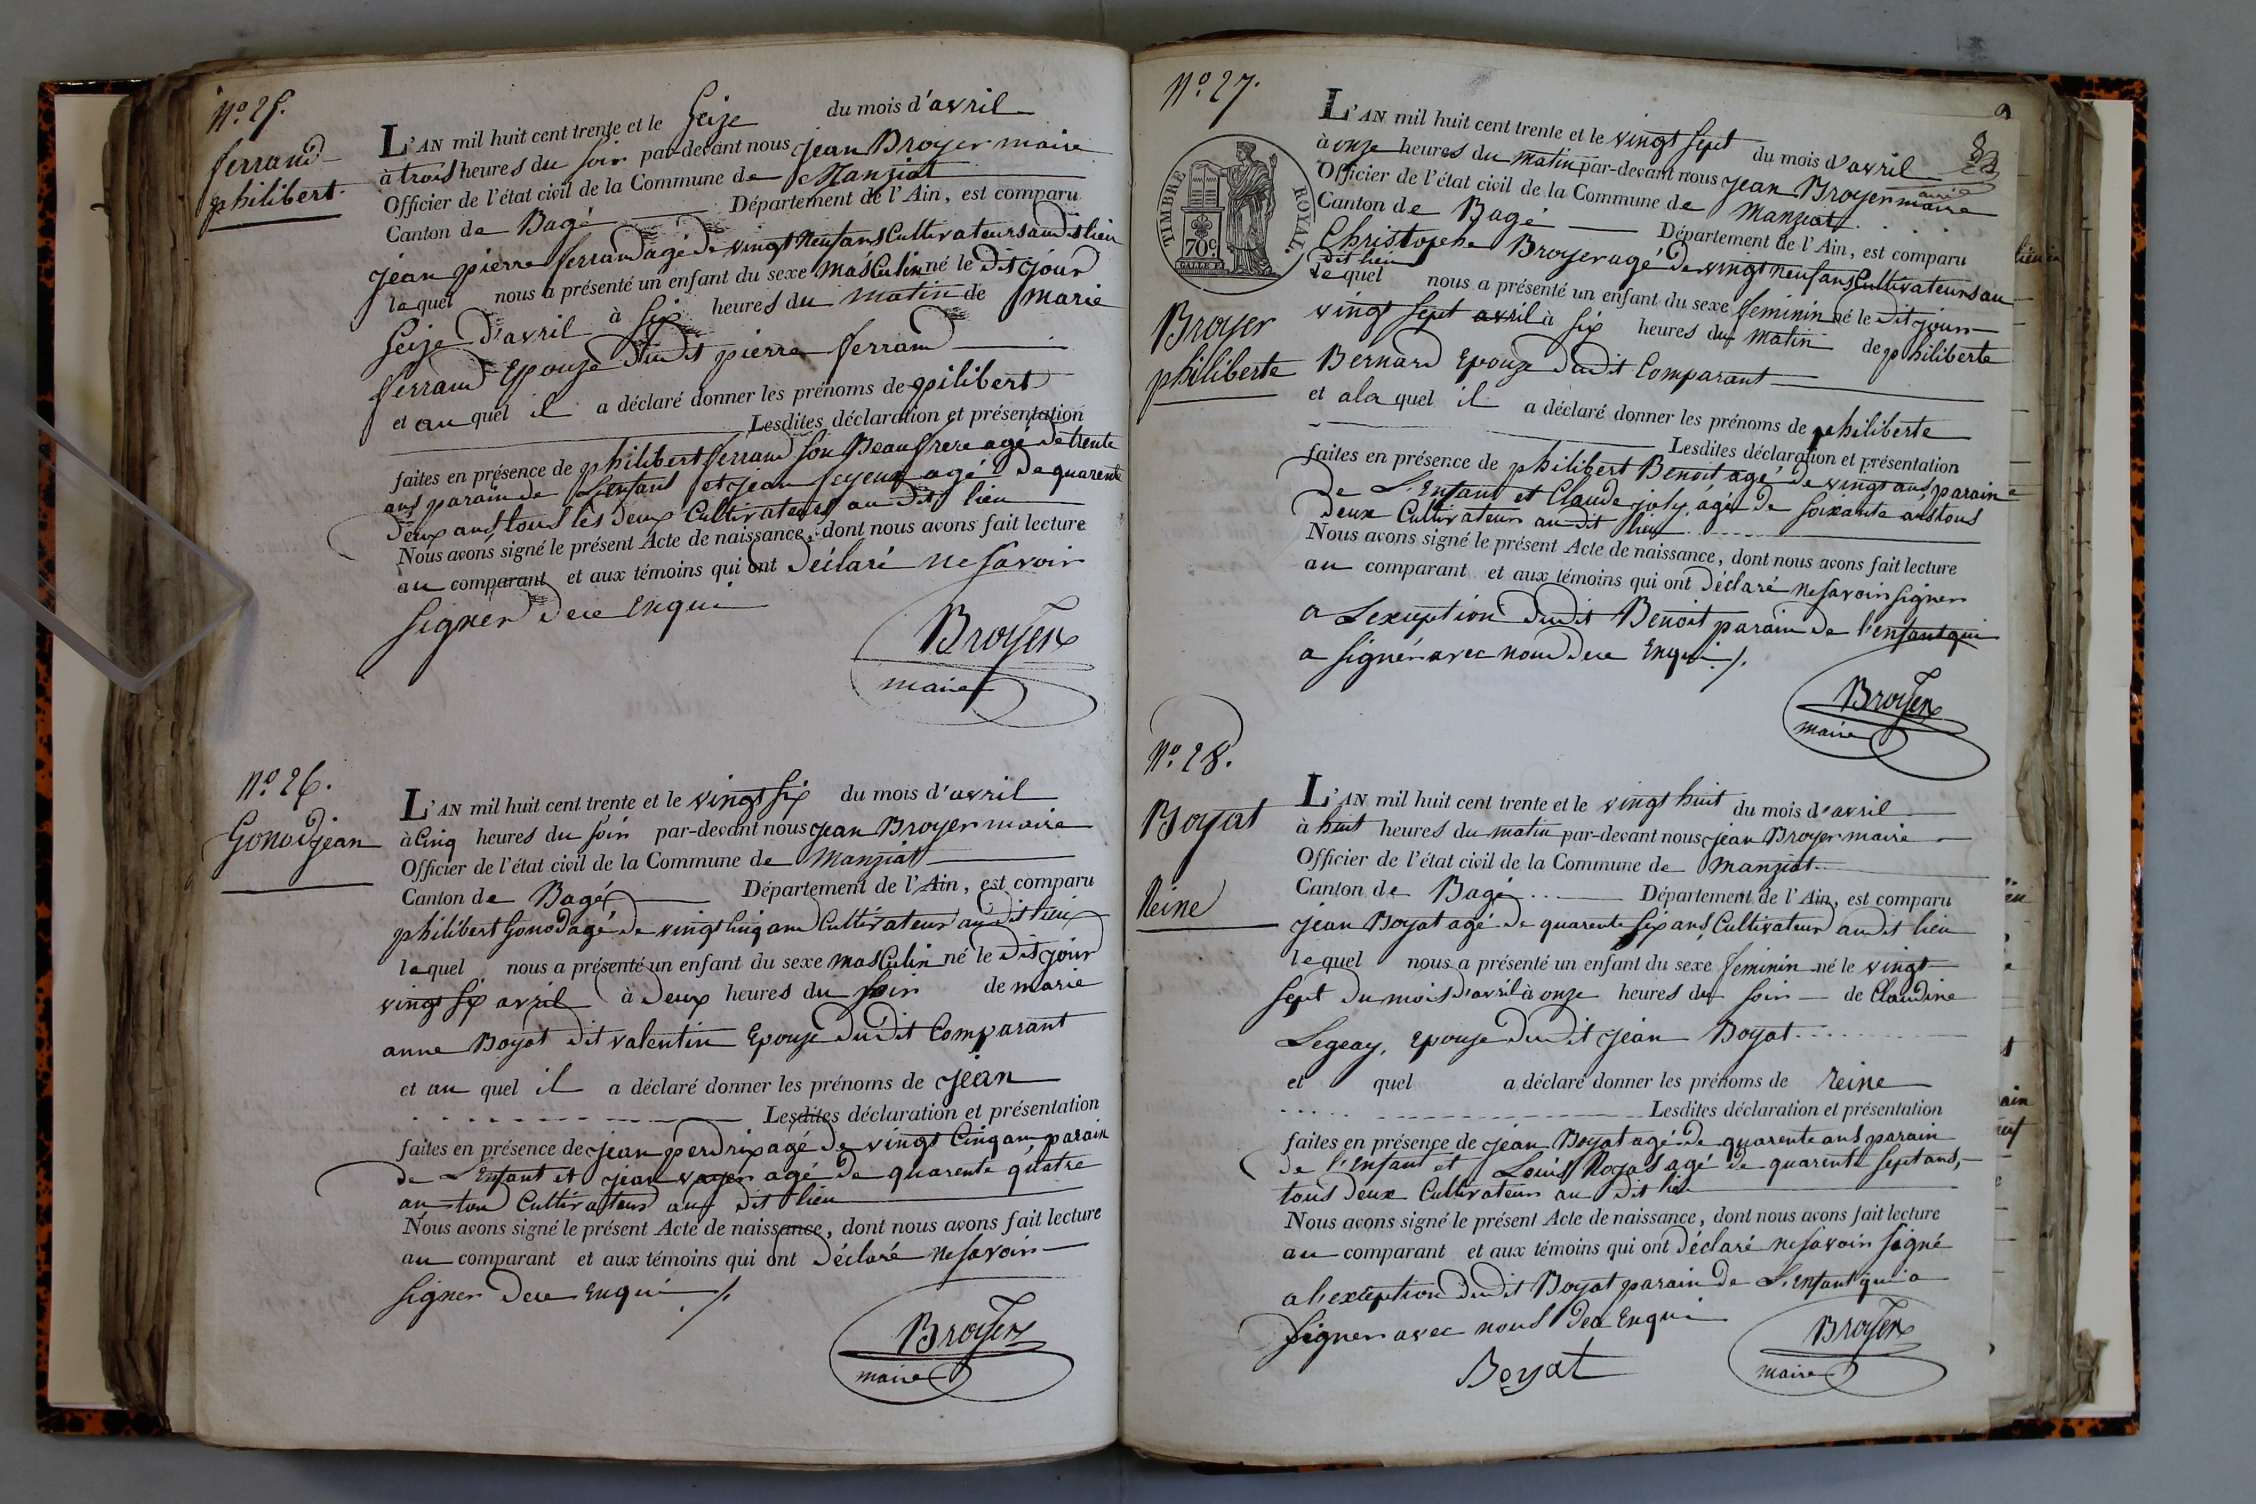 N.º 25.
ferrand
philibert.
L'AN mil huit cent trente et le Seize du mois d'avril
à trois heures du soir par-devant nous jean Broyer maire
Officier de l'état civil de la Commune de Manziat
Canton de Bagé Département de l'Ain, est comparu
jean pierre ferrand agé de vingt neuf ans Cultivateurs audit lieu
lequel nous a présenté un enfant du sexe masculin né le dit jour
Seize d'avril à six heures du matin de marie
ferrand Epouze dudit pierre ferrand
et au quel il a déclaré donner les prénoms de pilibert
Lesdites déclaration et présentation
faites en présence de philibert ferrand son Beaufrere agé de trente
ans parain de L'enfant et jean feyeux agé de quarente
deux ans tous les deux Cultivateurs au dit lieu
Nous avons signé le présent Acte de naissance, dont nous avons fait lecture
au comparant et aux témoins qui ont déclaré ne savoir
signer dece Enqui
Broyer
maire
N.º 26.
Gonod jean
L'AN mil huit cent trente et le vingt six du mois d'avril
à Cinq heures du soir par-devant nous jean Broyer maire
Officier de l'état civil de la Commune de Manziat
Canton de Bagé Département de l'Ain, est comparu
philibert Gonod agé de vingt Cinq ans Cultivateur audit lieu
lequel nous a présenté un enfant du sexe masculin né le dit jour
vingt six avril à deux heures du soir de marie
anne Boyat dit valentin Epouze dudit Comparant
et au quel il a déclaré donner les prénoms de jean
Lesdites déclaration et présentation
faites en présence de jean perdrix agé de vingt Cinq ans parain
de L'Enfant et jean vayer agé de quarente quatre
an tous Cultivateurs au dit lieu
Nous avons signé le présent Acte de naissance, dont nous avons fait lecture
au comparant et aux témoins qui ont déclaré ne savoir
signer dece Enqui
Broyer
maire
N.º 27.
TIMBRE ROYAL
70 c
Broyer
philiberte
L'AN mil huit cent trente et le vingt sept du mois d'avril
à onze heures du matin par-devant nous jean Broyer maire
Officier de l'état civil de la Commune de Manziat
Canton de Bagé Département de l'Ain, est comparu
Christophe Broyer agé de vingt neuf ans Cultivateurs au
dit lieu
lequel nous a présenté un enfant du sexe feminin né le dit jour
vingt sept avril à six heures du matin de philiberte
Bernard Epouze dudit Comparant
et a la quel il a déclaré donner les prénoms de philiberte
Lesdites déclaration et présentation
faites en présence de philibert Benoit agé de vingt ans parain
de L'Enfant et Claude joly agé de soixante ans tous
deux Cultivateurs au dit lieu
Nous avons signé le présent Acte de naissance, dont nous avons fait lecture
au comparant et aux témoins qui ont déclaré ne savoir signer
a L'exception dudit Benoit parain de l'enfant qui
a signer avec nous dece Enqui
Broyer
maire
N.º 28.
Boyat
Reine
L'AN mil huit cent trente et le vingt huit du mois d'avril
à huit heures du matin par-devant nous jean Broyer maire
Officier de l'état civil de la Commune de Manziat
Canton de Bagé Département de l'Ain, est comparu
jean Boyat agé de quarente six ans Cultivateur audit lieu
lequel nous a présenté un enfant du sexe feminin né le vingt
sept du mois d'avril à onze heures du soir de Claudine
Legeay, Epouze dudit jean Boyat
et quel a déclaré donner les prénoms de reine
Lesdites déclaration et présentation
faites en présence de jean Boyat agé de quarente ans parain
de l'Enfant et Louis agé de quarente sept ans,
tous deux Cultivateurs au dit lieu
Nous avons signé le présent Acte de naissance, dont nous avons fait lecture
au comparant et aux témoins qui ont déclaré ne savoir signé
a l'exception dudit Boyat parain de L'Enfant qui a
signer avec nous dece Enqui
Boyat
Broyer
maire